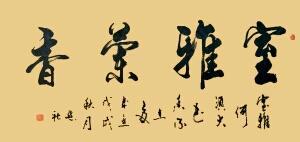 室雅蘭香
室雅
何
須大
花
香不
在
多
戊戌
秋月